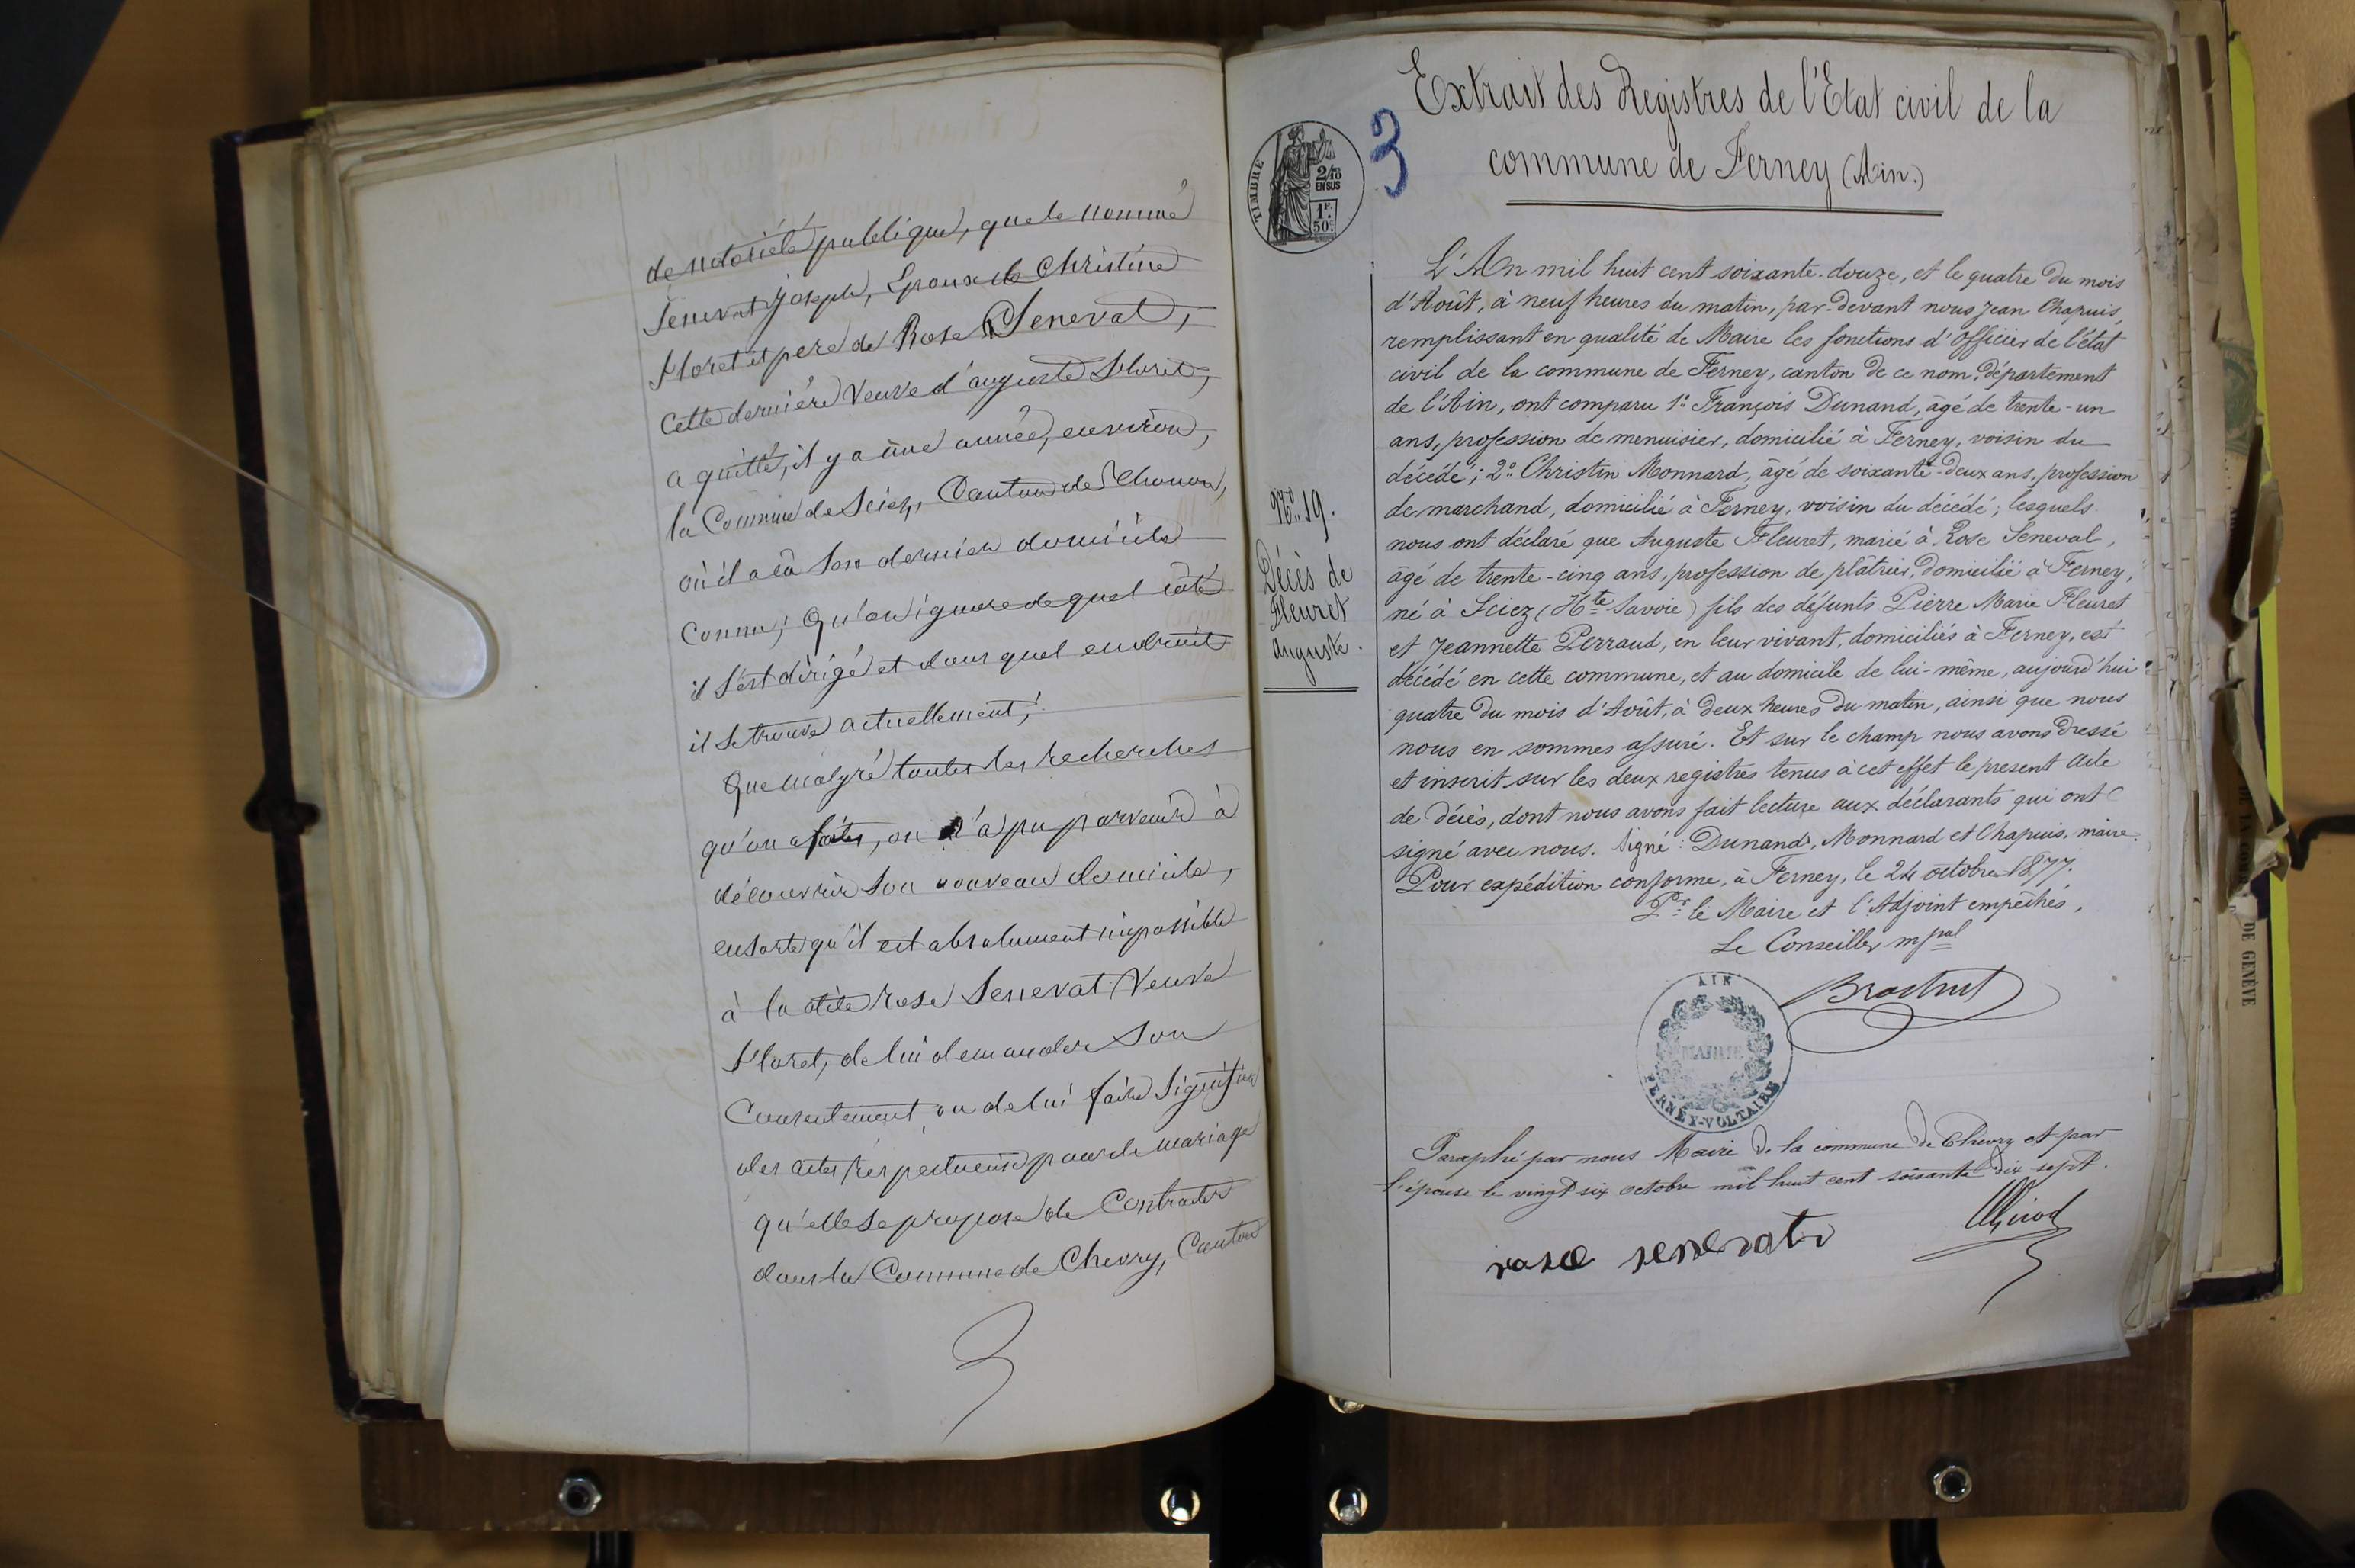 de notoriété publique, que le nommé
Senevat Joseph, Epoux de Christine
Floret et père de Rose Senevat,
Cette dernière Veuve d'auguste Floret,
a quitté, il y a une année, environ,
la Commune de Sciez, Canton de Thonon,
où il a eû son dernier domicile
connu; Qu'on ignore de quel côté
il s'est dirigé et dans quel endroit
il se trouve actuellement;
Que malgré toutes les recherches
qu'on a faites, on n'a pu parvenir à
découvrir son nouveau domicile,
ensorte qu'il est absolument impossible
à la dite rose Senevat Veuve
Floret, de lui demander son
Consentement, ou de lui faire Signifier
des actes respectueux pour le mariage
qu'elle se propose de Contracter
dans la Commune de Chevry, Canton
3
Extrait des Registres de l'Etat civil de la
commune de Ferney (Ain.)
TIMBRE
2/10
EN SUS
1F.
50c.
N° 19.
Décès de
Fleuret
auguste.
L'An mil huit cent soixante-douze, et le quatre du mois
d'Août, à neuf heures du matin, par-devant nous Jean Chapuis,
remplissant en qualité de Maire les fonctions d'Officier de l'état
civil de la commune de Ferney, canton de ce nom, département
de l'Ain, ont comparu 1° François Dunand, âgé de trente-un
ans, profession de menuisier, domicilié à Ferney, voisin du
décédé; 2° Christin Monnard, âgé de soixante-deux ans, profession
de marchand, domicilié à Ferney, voisin du décédé; lesquels
nous ont déclaré que Auguste Fleuret, marié à Rose Seneval,
âgé de trente-cinq ans, profession de plâtrier, domicilié à Ferney,
né à Sciez (Hte Savoie) fils des défunts Pierre Marie Fleuret
et Jeannette Perraud, en leur vivant, domiciliés à Ferney, est
décédé en cette commune, et au domicile de lui-même, aujourd'hui
quatre du mois d'Août, à deux heures du matin, ainsi que nous
nous en sommes assuré. Et sur le champ nous avons dressé
et inscrit sur les deux registres tenus à cet effet le present acte
de décès, dont nous avons fait lecture aux déclarants qui ont
signé avec nous. Signé: Dunand, Monnard et Chapuis, maire.
Pour expédition conforme, à Ferney, le 24 octobre 1877.
Pr le Maire et l'Adjoint empêchés,
Le Conseiller mpal
AIN
MAIRIE
FERNEY-VOLTAIRE
Paraphé par nous Maire de la commune de Chevry et par
l'épouse le vingt six octobre mil huit cent soixante dix sept.
rose senevat
DE GENÈVE